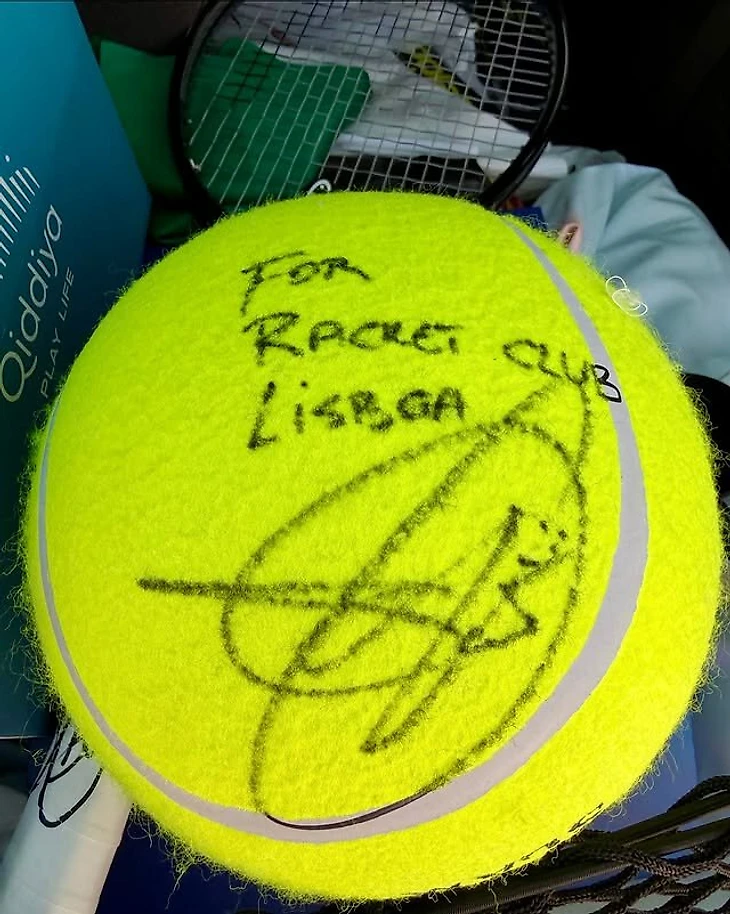 FOR
RACKET CLUB
LISBOA
Qiddiya
PLAY LIFE